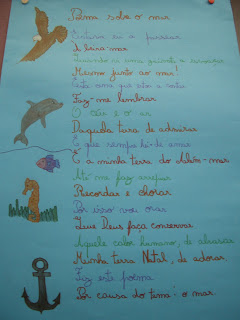 Poema sobre o mar
Estava eu a passear
À beira-mar
Mesmo junto ao mar!
Faz-me lembrar
O céu e o ar
Daquela terra de admirar
E que sempre hei-de amar
É a minha terra do Além-mar
Até me faz arrepiar
Recordar e chorar
Por isso vou orar
Deus faça conservar
Aquele calor humano, de abrasar
Minha terra Natal, de adorar
Fiz este poema
Por causa do tema: o mar.